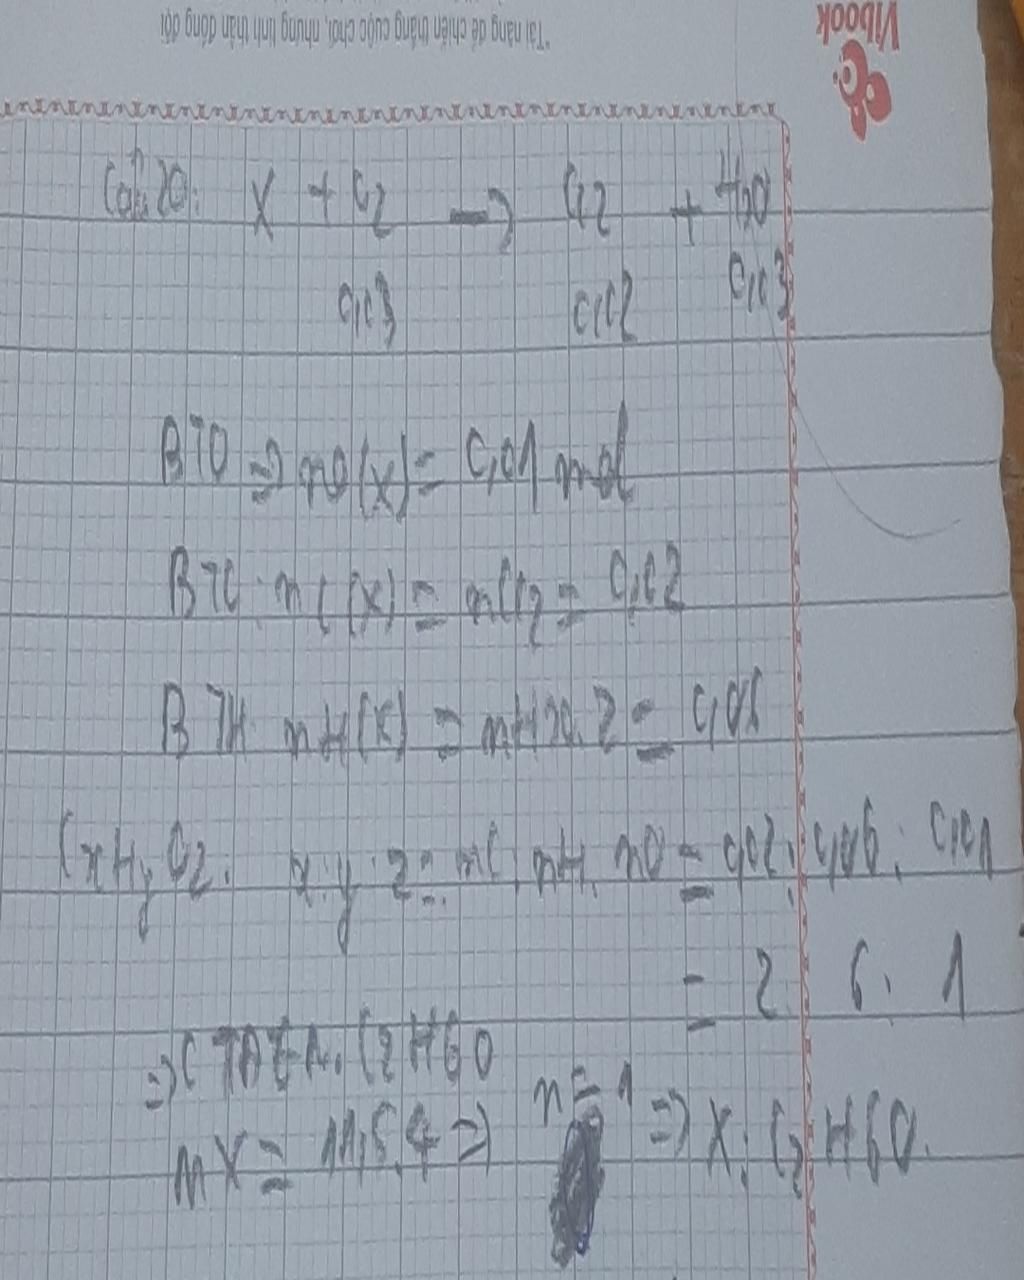 Vibook
"Tài năng để chiến thắng cuộc chơi, nhưng tinh thần đồng đội
Câu 20: X + O2 → CO2 + H2O
0,03 0,02 0,03
BTO => nO(X) = 0,01 mol
BTC: nC(X) = nCO2 = 0,02
BTH: nH(X) = nH2O.2 = 0,06
CxHyOz: x:y:z = nC:nH:nO = 0,02:0,06:0,01
= 2:6:1
=> CTĐGN: C2H6O
MX = 11,5.4 => n=1 => X: C2H6O.